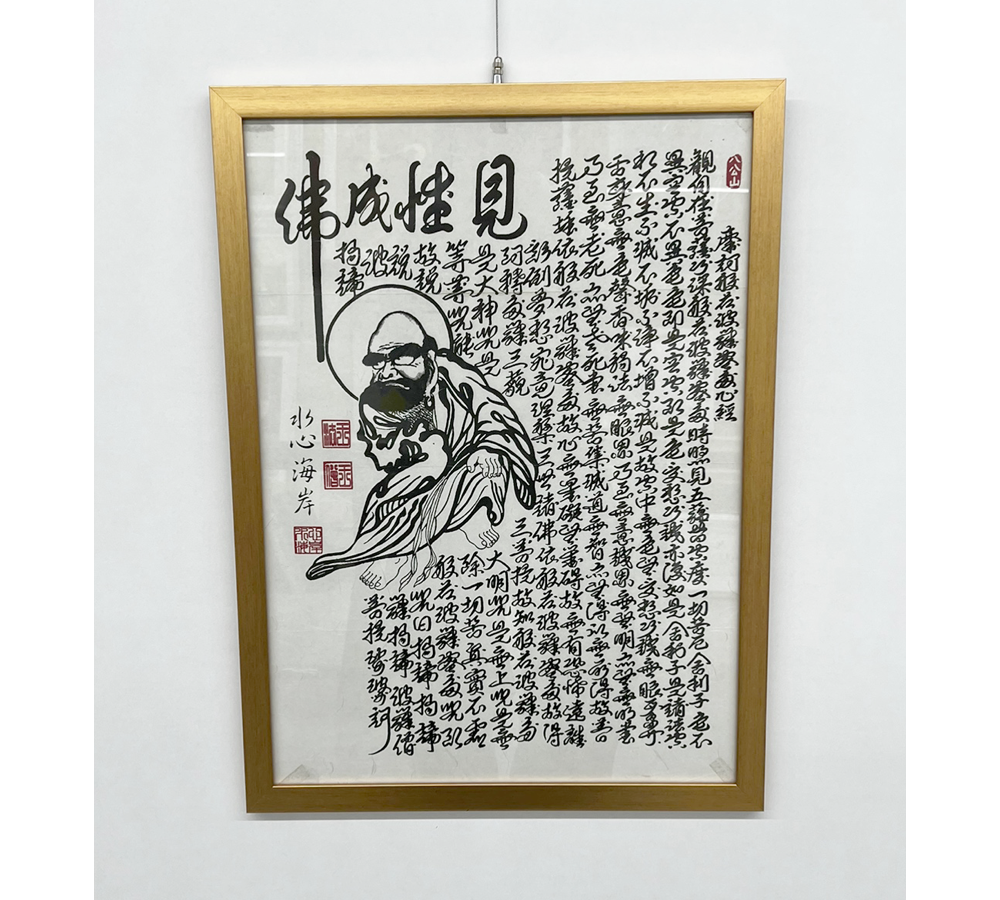 八公山
摩訶般若波羅蜜多心經
觀自在菩薩行深般若波羅蜜多時照見五蘊皆空度一切苦厄舍利子色不
異空空不異色色即是空空即是色受想行識亦復如是舍利子是諸法空
相不生不滅不垢不淨不增不減是故空中無色無受想行識無眼耳鼻
舌身意無色聲香味觸法無眼界乃至無意識界無無明亦無無明盡
乃至無老死亦無老死盡無苦集滅道無智亦無得以無所得故菩
提薩埵依般若波羅蜜多故心無罣礙無罣礙故無有恐怖遠離
顛倒夢想究竟涅槃三世諸佛依般若波羅蜜多故得
阿耨多羅三藐三菩提故知般若波羅蜜多
是大神咒是大明咒是無上咒是無
等等咒能除一切苦真實不虛
故說般若波羅蜜多咒即
說咒曰揭諦揭諦
波羅揭諦波羅僧
揭諦菩提薩婆訶
見性成佛
水心海岸